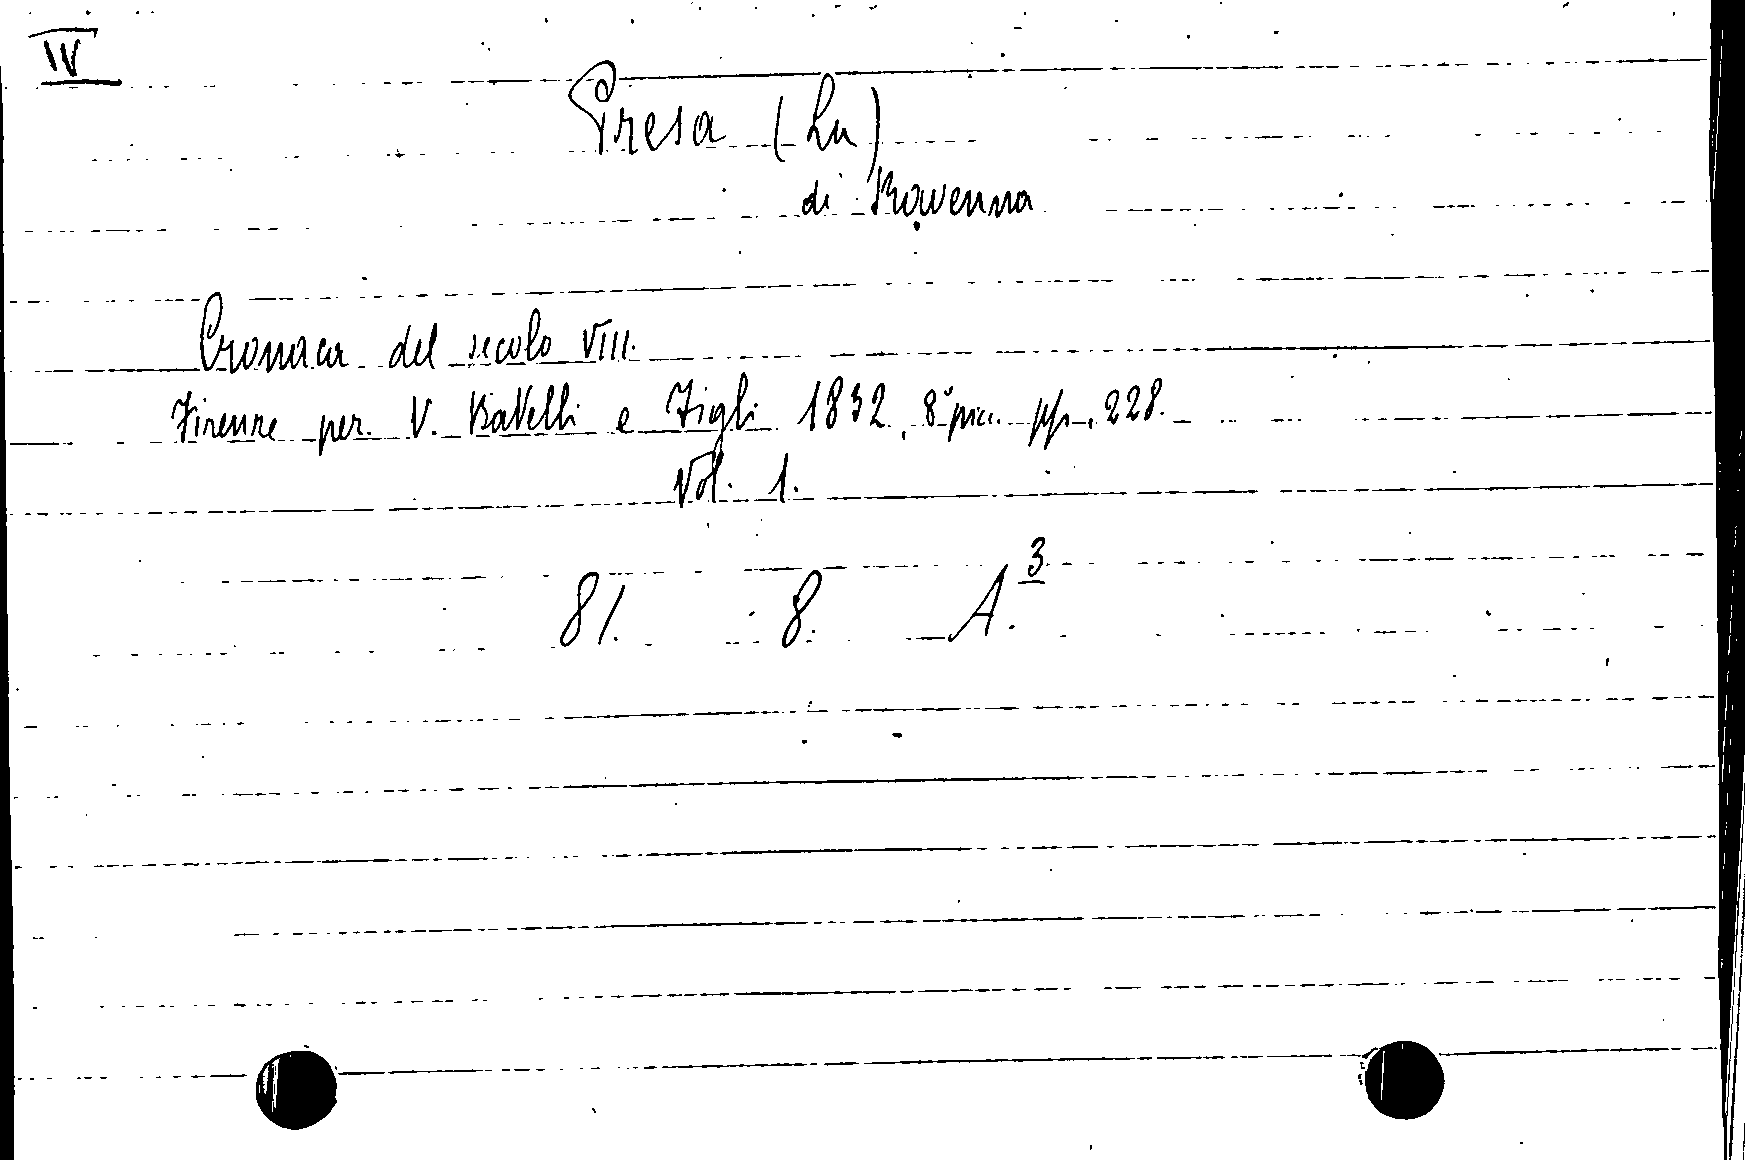 IV
Presa (La)
di Ravenna
Cronaca del secolo VIII.
Firenze per V. Batelli e Figli 1832, 8° picc. pp. 228.
Vol. 1.
81. 8. A.3